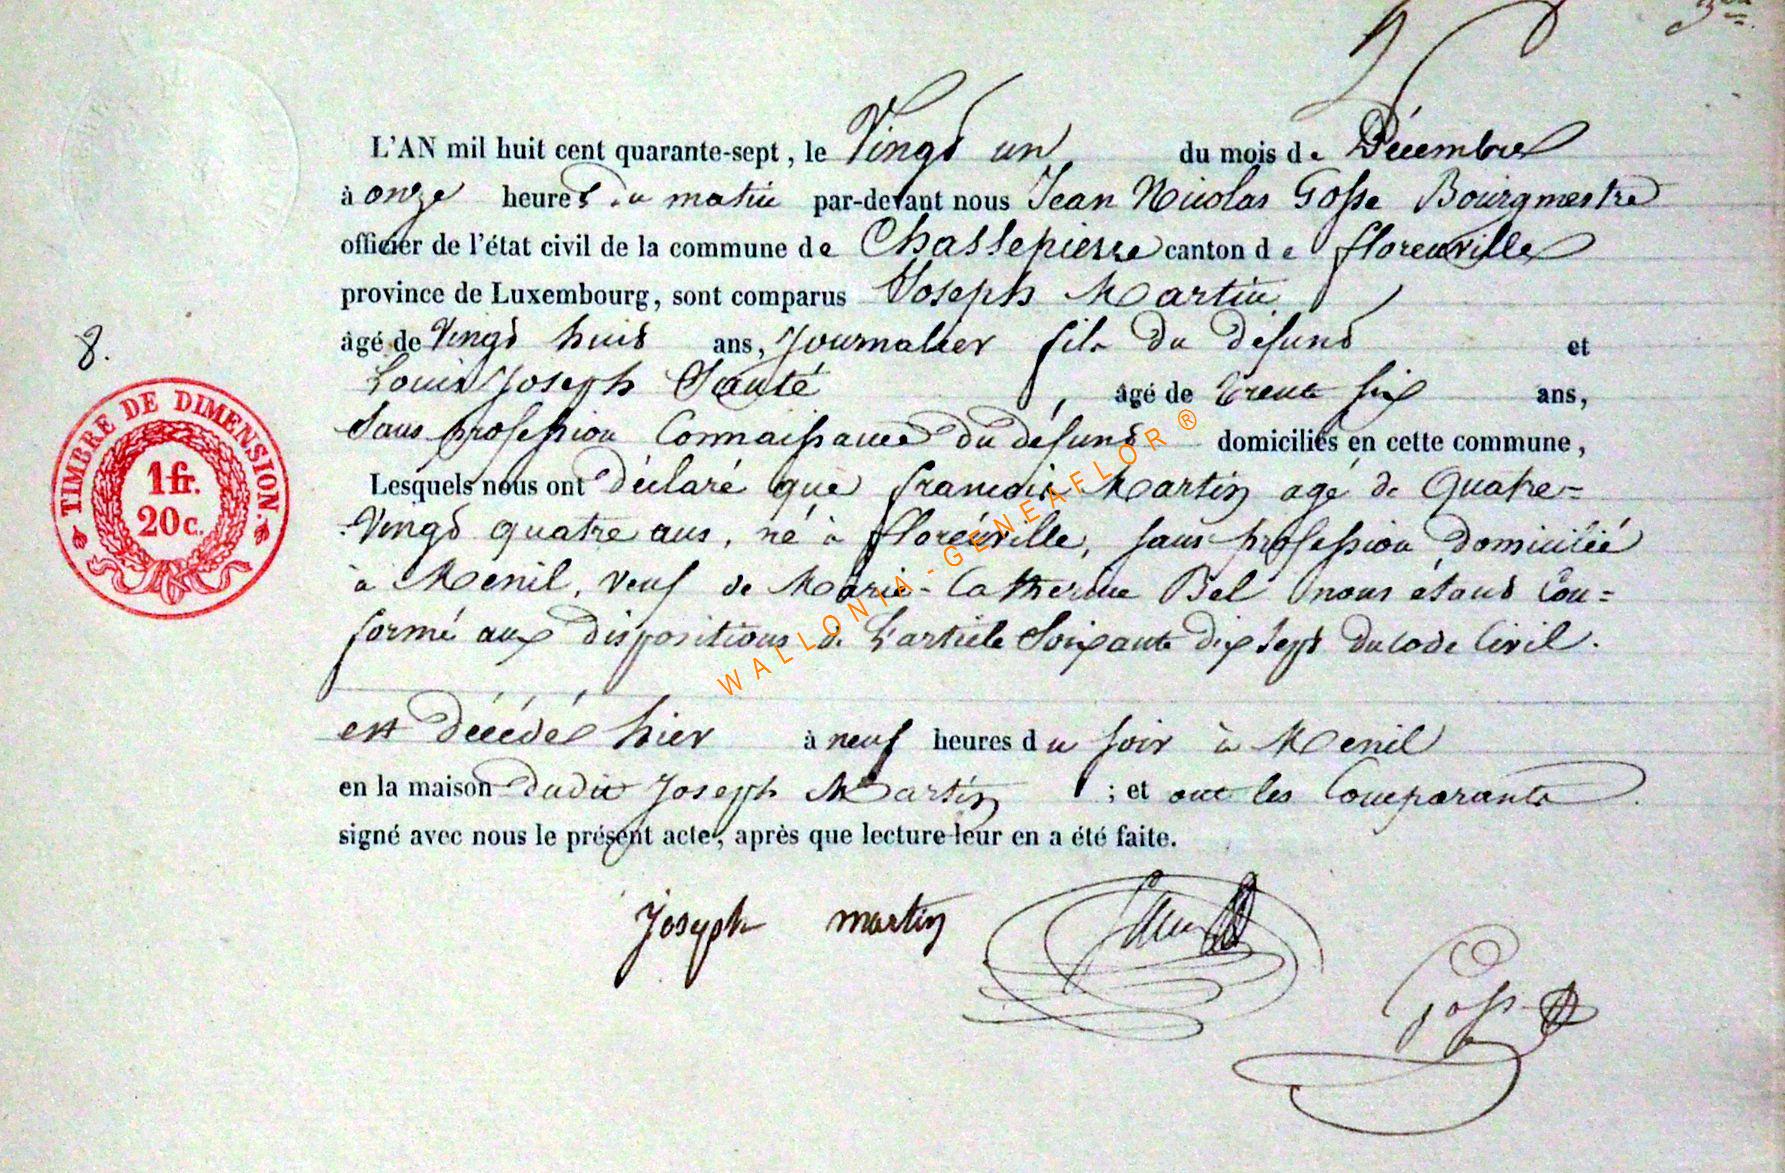 L'AN mil huit cent quarante-sept, le Vingt un du mois de Décembre
à onze heures du matin par-devant nous Jean Nicolas Gosse Bourgmestre
officier de l'état civil de la commune de Chassepierre canton de florenville
province de Luxembourg, sont comparus Joseph Martin
âgé de Vingt huit ans, journalier fils du défunt et
Louis Joseph Santé, âgé de trente six ans,
Sans profession Connaissance du défunt domiciliés en cette commune,
Lesquels nous ont déclaré que françois Martin agé de Quatre=
Vingt quatre ans, né à florenville, sans profession domicilié
à Menil, veuf de Marie-Catherine Bel nous étant Con=
formé aux dispositions de l'article Soixante dix sept du code Civil.
est décédé hier à neuf heures du soir à Menil
en la maison dudit Joseph Martin ; et ont les Comparants
signé avec nous le présent acte, après que lecture leur en a été faite.
8.
TIMBRE DE DIMENSION.
1 fr.
20 c.
WALLONIA-GENEAFLOR ®
Joseph martin
Gosse